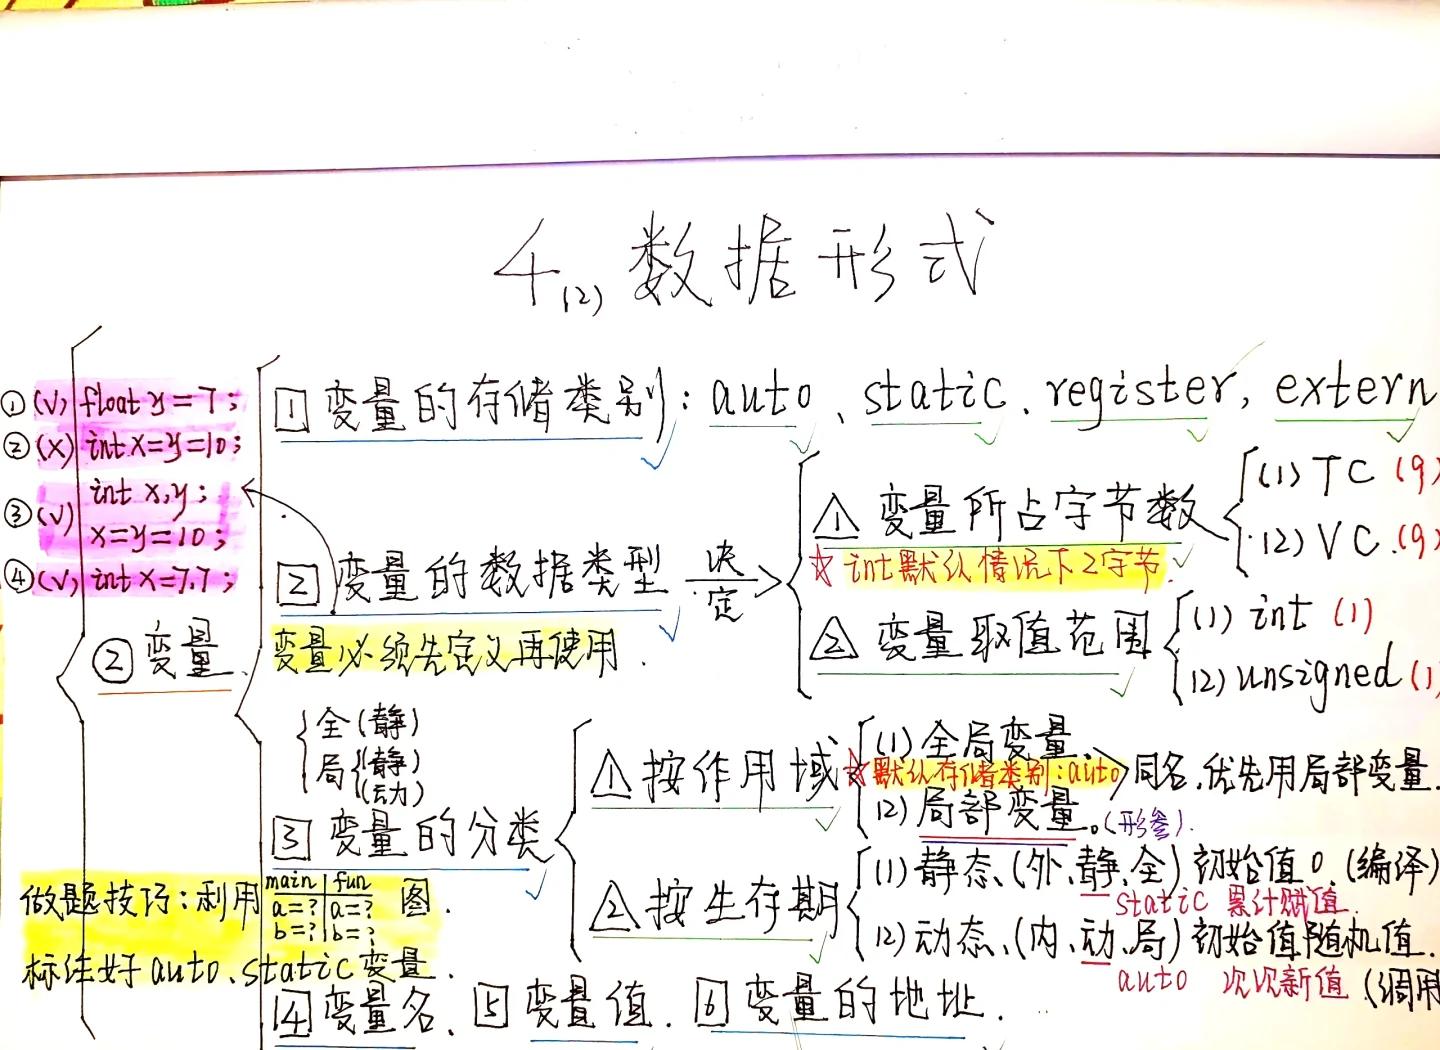 4(2) 数据形式
① (√) float y = 7;
② (×) int x=y=10;
③ (√) int x,y;
x=y=10;
④ (√) int x=7.7;
② 变量.
1 变量的存储类别: auto、static、register, extern
2 变量的数据类型 决定
变量必须先定义再使用.
△1 变量所占字节数
(1) TC (9)
(2) VC (9)
☆ int默认情况下2字节.
△2 变量取值范围
(1) int (1)
(2) unsigned (1
全(静)
局(静)
(动)
3 变量的分类
△1 按作用域
(1) 全局变量.
☆默认存储类别:auto
(2) 局部变量。(形参).
同名,优先用局部变量.
△2 按生存期
(1) 静态、(外、静、全) 初始值0. (编译)
static 累计赋值.
(2) 动态、(内、动、局) 初始值随机值.
auto 次次新值 (调用
做题技巧:利用 main | fun 图.
a=? | a=?
b=? | b=?
标注好auto、static变量.
4 变量名、 5 变量值. 6 变量的地址.